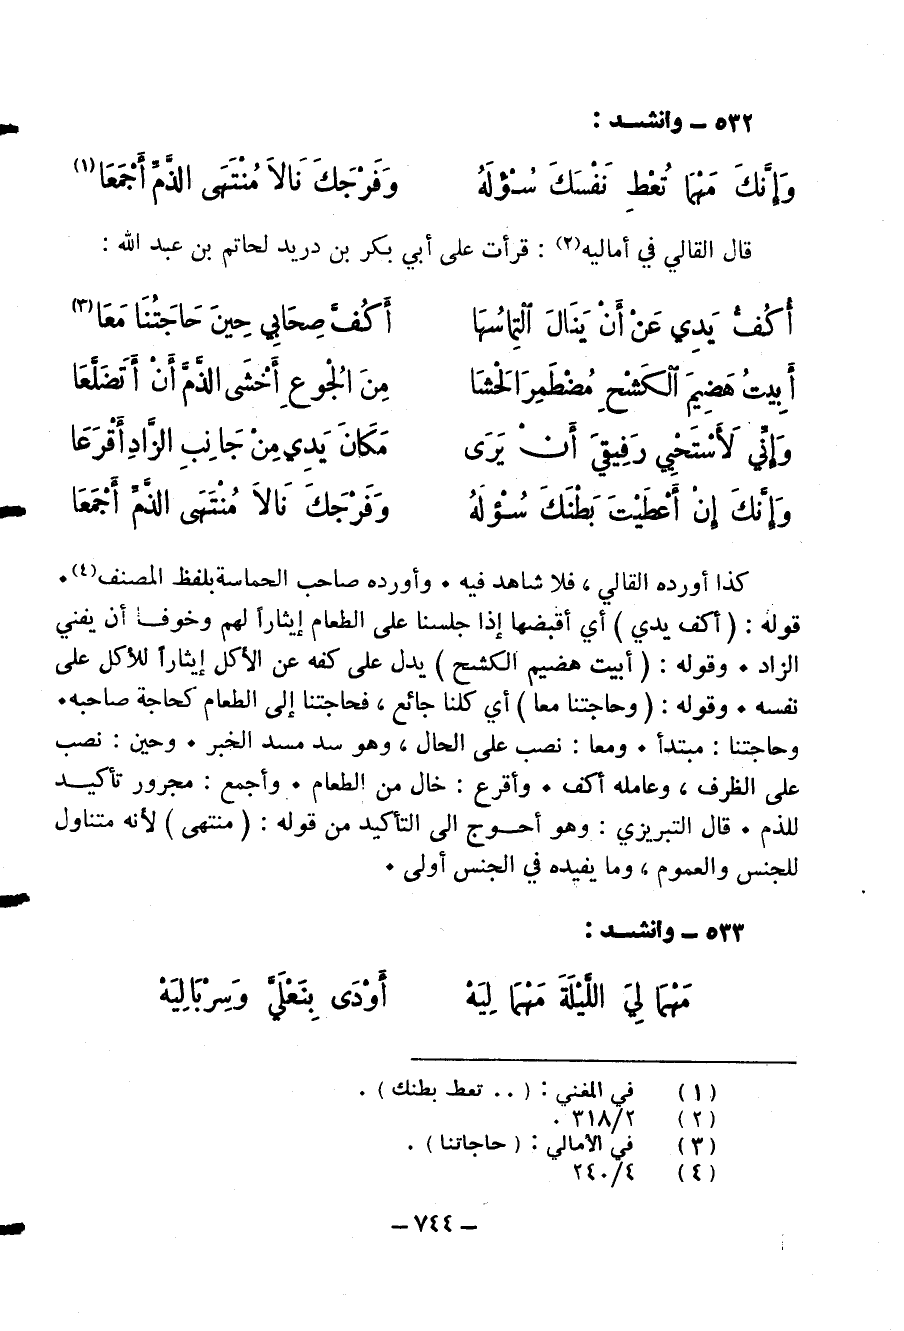 ٥٣٢ ــ وانشــد :
وَإِنَّكَ مَهْمَا تُعْطِ نَفْسَكَ سُؤْلَهُ وَفَرْجَكَ نَالاَ مُنْتَهَى الذَّمِّ أَجْمَعَا (١)
قال القالي في أماليه (٢) : قرأت على أبي بكر بن دريد لحاتم بن عبد الله :
أَكُفُّ يَدِي عَنْ أَنْ يَنَالَ الْتِمَاسُهَا أَكُفَّ صِحَابِي حِينَ حَاجَتُنَا مَعَا (٣)
أَبِيتُ هَضِيمَ الْكَشْحِ مُضْطَمِرَ الْحَشَا مِنَ الْجُوعِ أَخْشَى الذَّمَّ أَنْ أَتَضَلَّعَا
وَإِنِّي لَأَسْتَحْيِي رَفِيقِيَ أَنْ يَرَى مَكَانَ يَدِي مِنْ جَانِبِ الزَّادِ أَقْرَعَا
وَإِنَّكَ إِنْ أَعْطَيْتَ بَطْنَكَ سُؤْلَهُ وَفَرْجَكَ نَالاَ مُنْتَهَى الذَّمِّ أَجْمَعَا
كذا أورده القالي ، فلا شاهد فيه ٠ وأورده صاحب الحماسة بلفظ المصنف (٤) ٠
قوله : ( أكف يدي ) أي أقبضها إذا جلسنا على الطعام إيثاراً لهم وخوفـا أن يفني
الزاد ٠ وقوله : ( أبيت هضيم الكشح ) يدل على كفه عن الأكل إيثاراً للأكل على
نفسه ٠ وقوله : ( وحاجتنا معا ) أي كلنا جائع ، فحاجتنا إلى الطعام كحاجة صاحبه ٠
وحاجتنا : مبتدأ ٠ ومعا : نصب على الحال ، وهو سد مسد الخبر ٠ وحين : نصب
على الظرف ، وعامله أكف ٠ وأقرع : خال من الطعام ٠ وأجمع : مجرور تأكيــد
للذم ٠ قال التبريزي : وهو أحــوج الى التأكيد من قوله : ( منتهى ) لأنه متناول
للجنس والعموم ، وما يفيده في الجنس أولى ٠
٥٣٣ ــ وانشــد :
مَهْمَا لِيَ اللَّيْلَةَ مَهْمَا لِيَهْ أَوْدَى بِنَعْلَيَّ وَسِرْبَالِيَهْ
(١) في المغني : ( .. تعط بطنك ) .
(٢) ٣١٨/٢ .
(٣) في الأمالي : ( حاجاتنا ) .
(٤) ٢٤٠/٤
– ٧٤٤ –